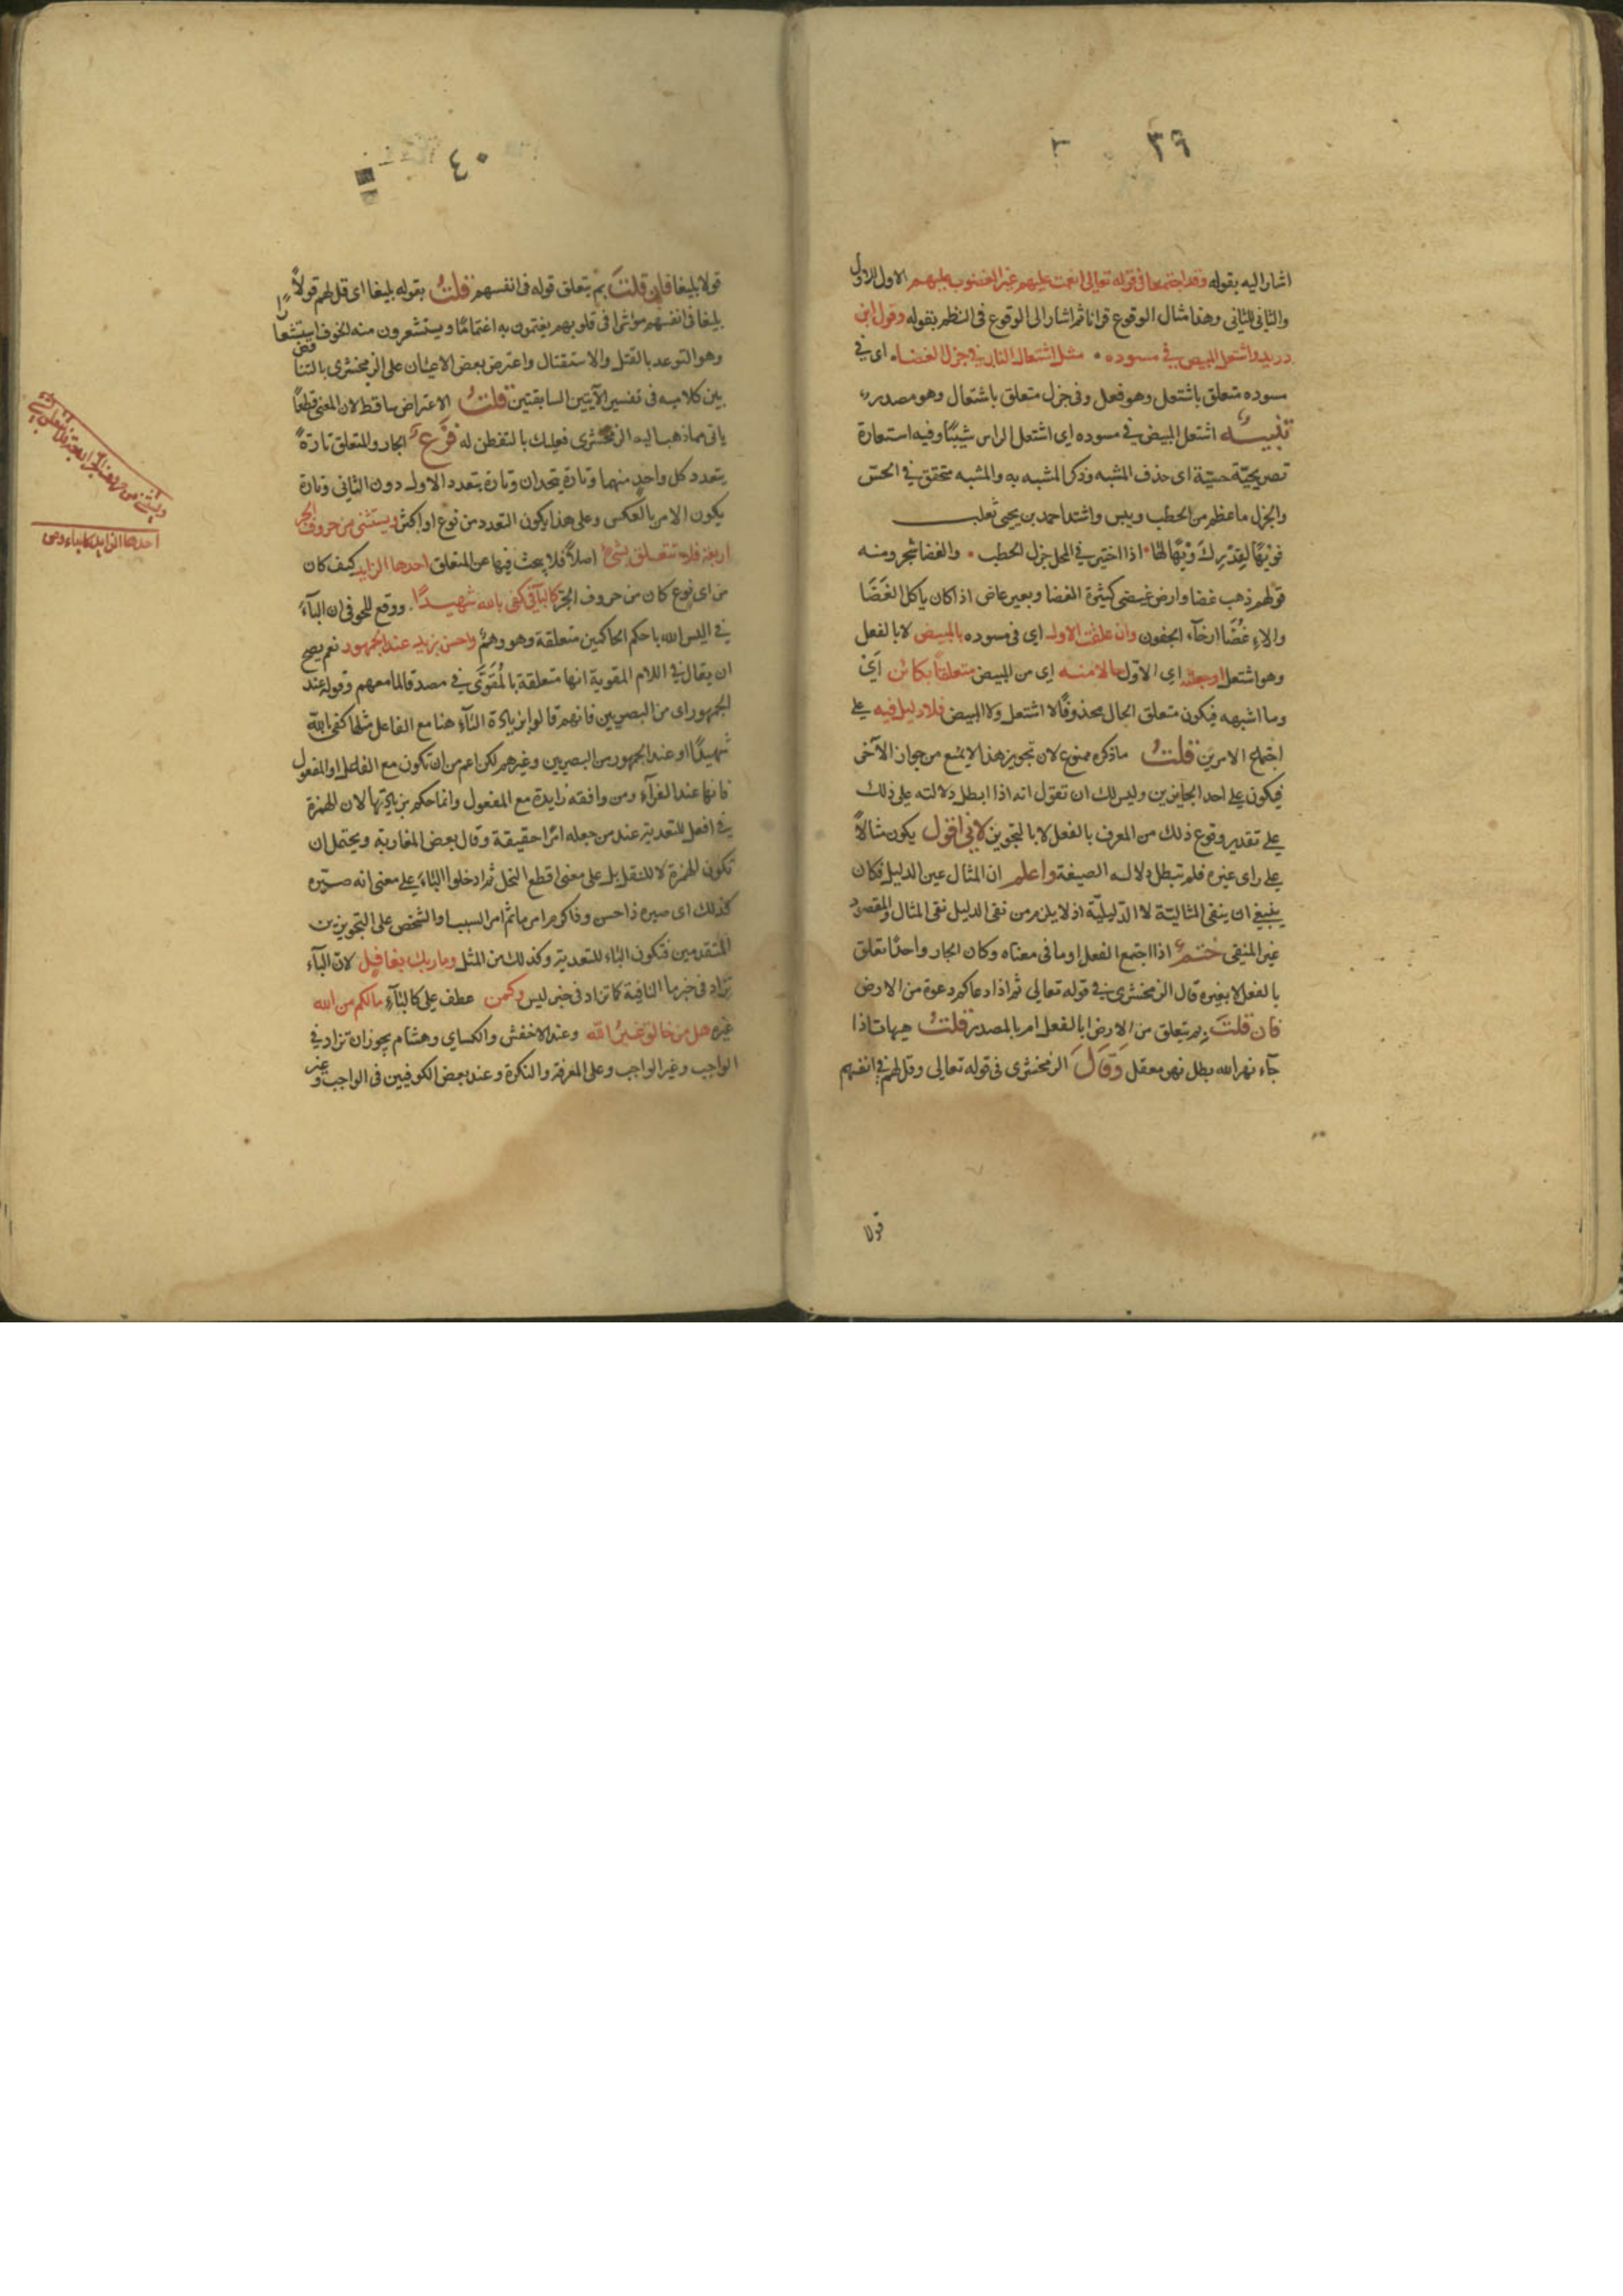 ٣٩
اشار اليه بقوله وقد اجتمعا في قوله تعالى انعمت عليهم غير المغضوب عليهم الاول للاول
والثاني للثاني وهذا مثال الوقوع قرانا ثم اشار الى الوقوع في النظم بقوله وقول ابن
دريد واشتعل المبيض في مسوده • مثل اشتعال النار في جزل الغضا • اى في
مسوده متعلق باشتعل وهو فعل وفي جزل متعلق باشتعال وهو مصدر
تنبيه اشتعل المبيض في مسوده اى اشتعل الراس شيبًا وفيه استعارة
تصريحيّة حسيّة اى حذف المشبه وذكر المشبه به والمشبه متحقق في الحسّ
والجزل ما عظم من الحطب ويبس وانشد احمد بن يحيى ثعلب
فويهًا لقدرك ويهًا لها • اذا اختير في المحل جزل الحطب • والغضا شجر ومنه
قولهم ذهب غضا وارض غيضى كثيرة الغضا وبعير عاض اذا كان ياكل الغَضَا
والاغضا ارخآء الجفون وان علقت الاول اى في مسوده بالمبيض لا بالفعل
وهو اشتعل او جعلته اى الاول حالا منه اى من المبيض متعلقا بكائن اى
وما اشبهه فيكون متعلق الحال محذوفًا لا اشتعل ولا المبيض فلا دليل فيه على
اجتماع الامرين قلتُ ما ذكره ممنوع لان تجويز هذا لا يمنع من جواز الآخر
فيكون على احد الجايزين وليس لك ان تقول انه اذا ابطل دلالته على ذلك
على تقدير وقوع ذلك من المعرف بالفعل لا بالتجويز لاني اقول يكون مثالاً
على راى غيره فلم تبطل دلالة الصيغة واعلم ان المثال عين الدليل فكان
ينبغي ان ينفى المثاليّة لا الدّليليّة اذ لا يلزم من نفى الدليل نفى المثال والمقصود
غير المنفى ختم اذا اجتمع الفعل او ما في معناه وكان الجار واحدًا تعلق
بالفعل لا بغيره قال الزمخشرى في قوله تعالى ثم اذا دعاكم دعوة من الارض
فان قلتَ بم يتعلق من الارض ابالفعل ام بالمصدر قلتُ هيهات اذا
جآء نهر الله بطل نهر معقل وَقَالَ الزمخشرى في قوله تعالى وقل لهم في انفسهم
قولا
٤٠
قولا بليغا فان قلتَ بم يتعلق قوله في انفسهم قلتُ بقوله بليغا اى قل لهم قولاً
بليغا في انفسهم مؤثرا في قلوبهم يغتمون به اغتماما ويستشعرون منه الخوف استشعارًا
وهو التوعد بالقتل والاستقتال واعترض بعض الاعيان على الزمخشرى بالتناقض
بين كلاميه في تفسير الآيتين السابقتين قلتُ الاعتراض ساقط لان المعنى قطعًا
ياتي مما ذهب اليه الزمخشرى فعليك بالتفطن له فرع الجار والمتعلق تارةً
يتعدد كل واحد منهما وتارة يتحدان وتارة يتعدد الاول دون الثاني وتارة
يكون الامر بالعكس وعلى هذا يكون التعدد من نوع او اكثر ويستثنى من حروف الجر
اربعة فلا تتعلق بشئ اصلاً فلا يبحث فيها عن المتعلق احدها الزايد كيف كان
من اى نوع كان من حروف الجرّ كالبآ في كفى بالله شهيدًا. ووقع للحوفى ان البآء
في اليس الله باحكم الحاكمين متعلقة وهو وهمٌ واحسن بزيد عند الجمهور نعم يصح
ان يقال في اللام المقوية انها متعلقة بالمُقوَّى في مصدقا لما معهم وقوله عند
الجمهور اى من البصريين فانهم قالوا بزيادة البآء هنا مع الفاعل مثلها كفى بالله
شهيدًا او عند الجمهور من البصريين وغيرهم لكن اعم من ان تكون مع الفاعل او المفعول
فانها عند الفرآء ومن وافقه زايدة مع المفعول وانما حكم بزيادتها لان الهمزة
في افعل للتعدية عند من جعله امرًا حقيقة وقال بعض المغاربة ويحتمل ان
تكون الهمزة لا للنقل بل على معنى اقطع النخل ثم ادخلوا البآء على معنى انه صيّره
كذلك اى صيره ذا حسن وفاكرم امر ما ثم امر السبب او الشخص على التجويزين
المتقدمين فتكون البآء للتعدية وكذلك من المثل وما ربك بغافل لان البآء
تزاد في خبر ما النافية كما تزاد في خبر ليس وكمن عطف على كالبآء ما لكم من اله
غيره هل من خالق غيرُ الله وعند الاخفش والكساي وهشام يجوز ان تزاد في
الواجب وغير الواجب وعلى المعرفة والنكرة وعند بعض الكوفيين في الواجب وغير
احدها الزايد كالباء ومن